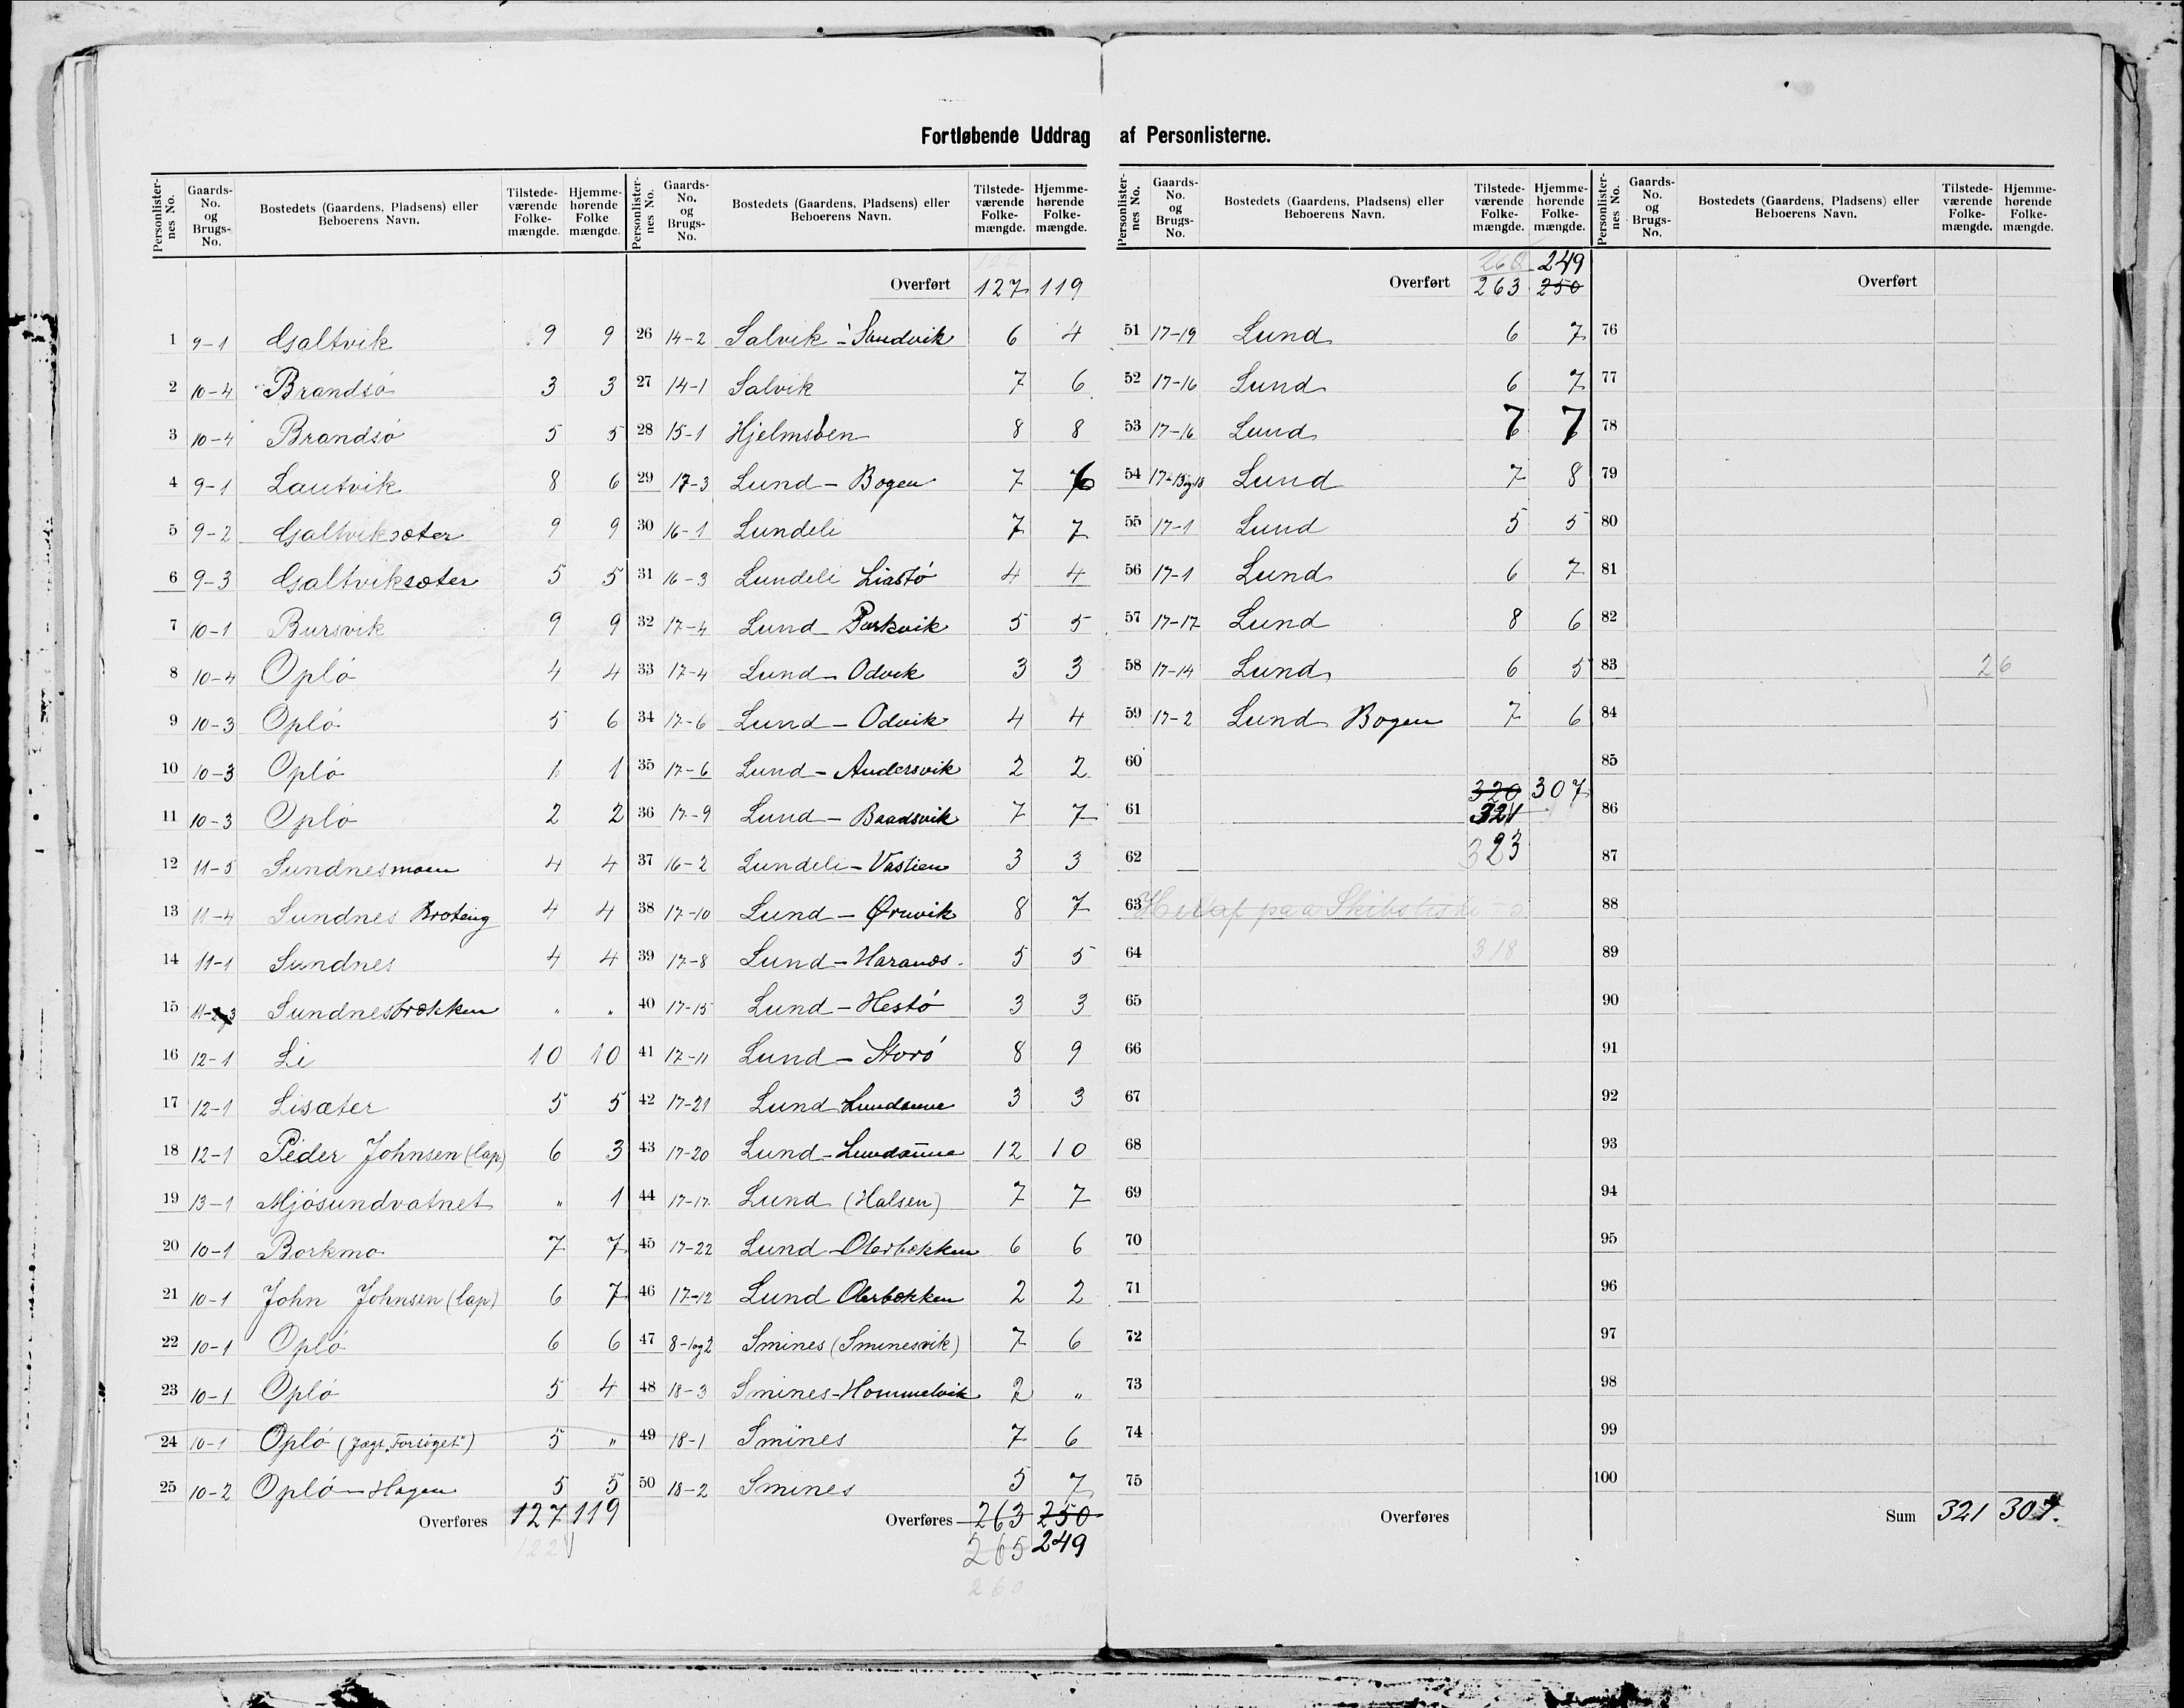 Fortløbende Uddrag af Personlisterne.
Personlisternes No. Gaards-No. og Brugs-No. Bostedets (Gaardens, Pladsens) eller Beboerens Navn. Tilstedeværende Folkemængde. Hjemmehørende Folkemængde.
1 9-1 Galtvik 9 9
2 10-4 Brandsø 3 3
3 10-4 Brandsø 5 5
4 9-1 Lautvik 8 6
5 9-2 Galtviksæter 9 9
6 9-3 Galtviksæter 5 5
7 10-1 Bursvik 9 9
8 10-4 Oplø 4 4
9 10-3 Oplø 5 6
10 10-3 Oplø 1 1
11 10-3 Oplø 2 2
12 11-5 Sundnesmoen 4 4
13 11-4 Sundnes Broteng 4 4
14 11-1 Sundnes 4 4
15 Sundnesbrækken " "
16 12-1 Li 10 10
17 12-1 Lisæter 5 5
18 12-1 Peder Johnsen (lap) 6 3
19 13-1 Mjøsundvatnet " 1
20 10-1 Borkmo 7 7
21 10-1 John Johnsen (lap) 6 7
22 10-1 Oplø 6 6
23 10-1 Oplø 5 4
24 10-1 Oplø (Jagt „Forsøget") 5 "
25 10-2 Oplø - Hagen 5 5
Overføres 127 119
122
Personlisternes No. Gaards-No. og Brugs-No. Bostedets (Gaardens, Pladsens) eller Beboerens Navn. Tilstedeværende Folkemængde. Hjemmehørende Folkemængde.
122
Overført 127 119
26 14-2 Salvik - Sandvik 6 4
27 14-1 Salvik 7 6
28 15-1 Hjelmsøen 8 8
29 17-3 Lund - Bogen 7 6
30 16-1 Lundeli 7 7
31 16-3 Lundeli Liastø 4 4
32 17-4 Lund Purkvik 5 5
33 17-4 Lund - Odvik 3 3
34 17-6 Lund - Odvik 4 4
35 17-6 Lund - Andersvik 2 2
36 17-9 Lund - Baadsvik 7 7
37 16-2 Lundeli - Vastien 3 3
38 17-10 Lund - Ørnvik 8 7
39 17-8 Lund - Haranes 5 5
40 17-15 Lund - Hestø 3 3
41 17-11 Lund - Storø 8 9
42 17-21 Lund Lundamne 3 3
43 17-20 Lund - Lundamne 12 10
44 17-17 Lund (Halsen) 7 7
45 17-22 Lund - Oterbekken 6 6
46 17-12 Lund Oterbekken 2 2
47 8-1og2 Smines (Sminesvik) 7 6
48 18-3 Smines - Hommelvik 2 "
49 18-1 Smines 7 6
50 18-2 Smines 5 7
Overføres 263 250
265 249
260
Personlisternes No. Gaards-No. og Brugs-No. Bostedets (Gaardens, Pladsens) eller Beboerens Navn. Tilstedeværende Folkemængde. Hjemmehørende Folkemængde.
260 249
Overført 263 250
51 17-19 Lund 6 7
52 17-16 Lund 6 7
53 17-16 Lund 7 7
54 17-13og18 Lund 7 8
55 17-1 Lund 5 5
56 17-1 Lund 6 7
57 17-17 Lund 8 6
58 17-14 Lund 6 5
59 17-2 Lund Bogen 7 6
60
320 307
61 321
62 323
63 Heraf paa Skibsliste
64 318
65
66
67
68
69
70
71
72
73
74
75
Overføres
Personlisternes No. Gaards-No. og Brugs-No. Bostedets (Gaardens, Pladsens) eller Beboerens Navn. Tilstedeværende Folkemængde. Hjemmehørende Folkemængde.
Overført
76
77
78
79
80
81
82
83 26
84
85
86
87
88
89
90
91
92
93
94
95
96
97
98
99
100
Sum 321 307.